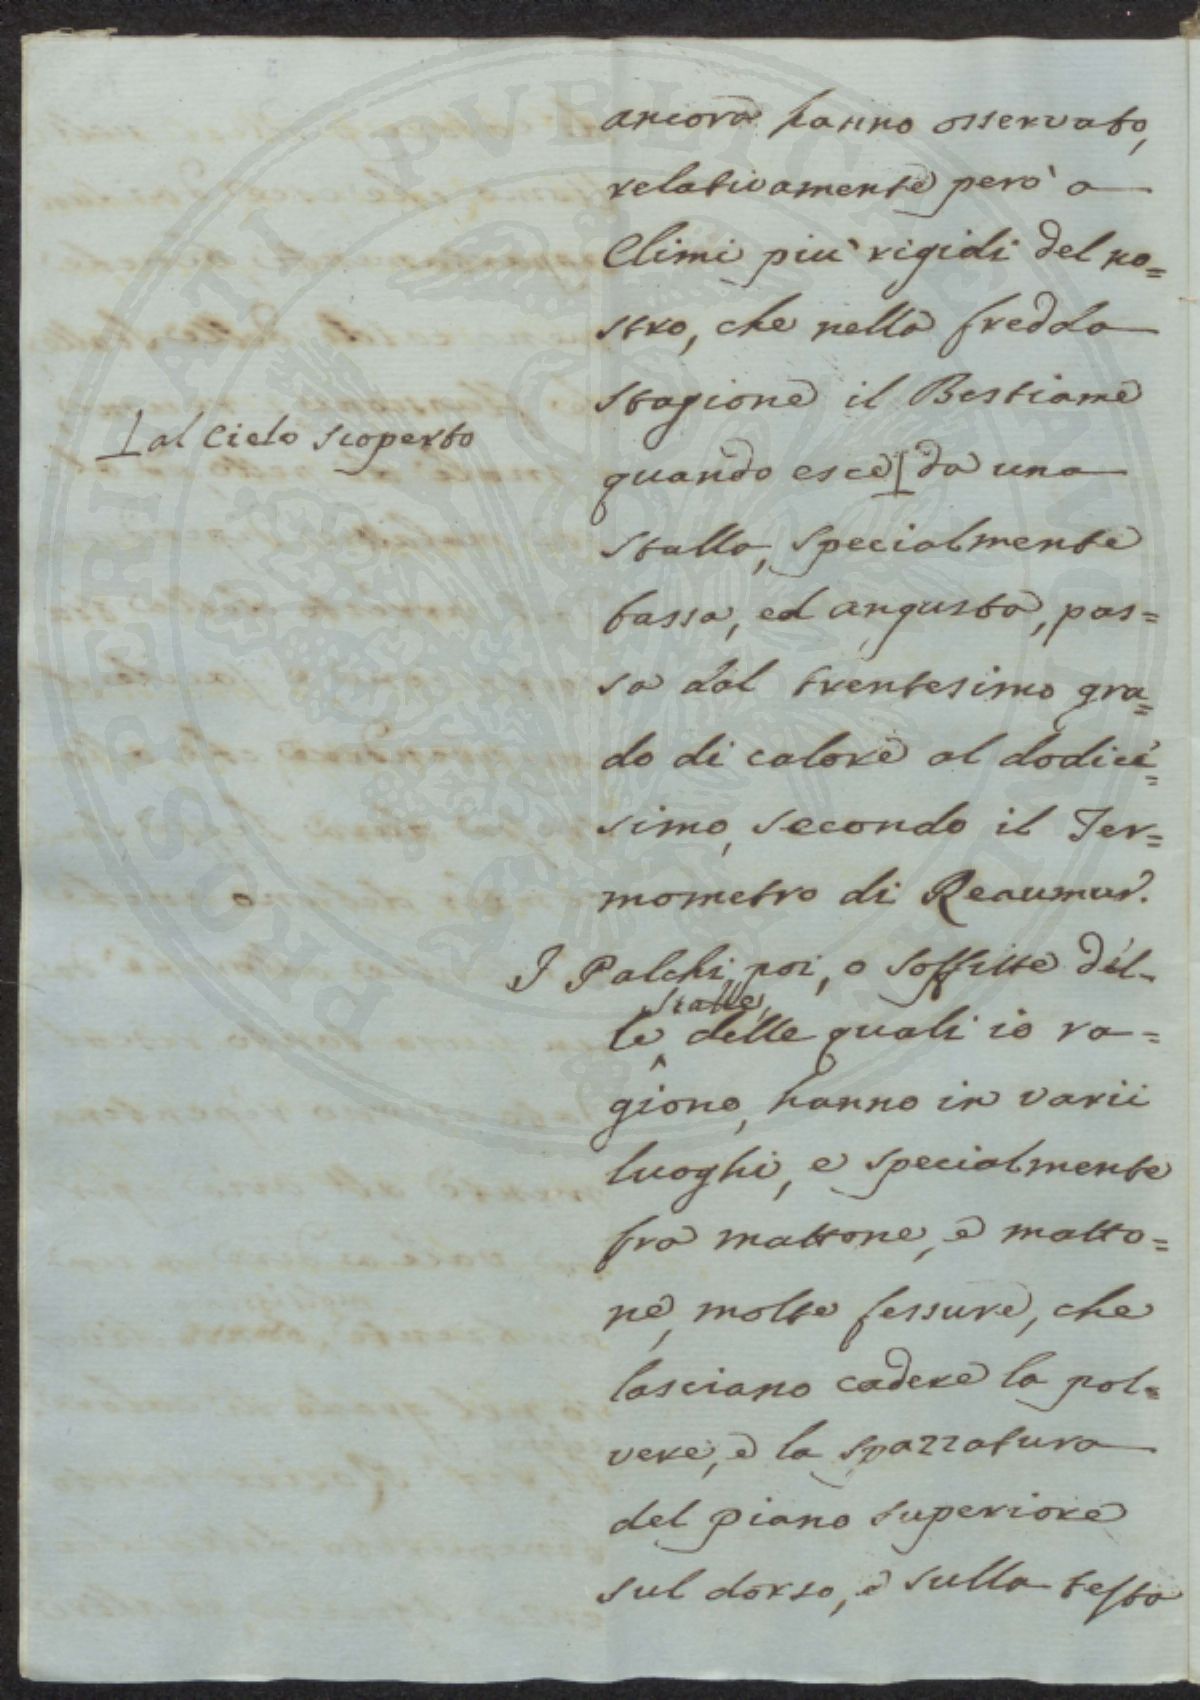 ancora hanno osservato,
relativamente però a
Climi più rigidi del no=
stro, che nella fredda
stagione il Bestiame
⊥ al Cielo scoperto
quando esce ⊥ da una
stalla, specialmente
bassa, ed angusta, pas=
sa dal trentesimo gra=
do di calore al dodice=
simo, secondo il Ter=
mometro di Reaumur.
I Palchi poi, o soffitte del=
stalle,
le ^ delle quali io ra=
giono, hanno in varii
luoghi, e specialmente
fra mattone, e matto=
ne, molte fessure, che
lasciano cadere la pol=
vere, e la spazzatura
del piano superiore
sul dorso, e sulla testa